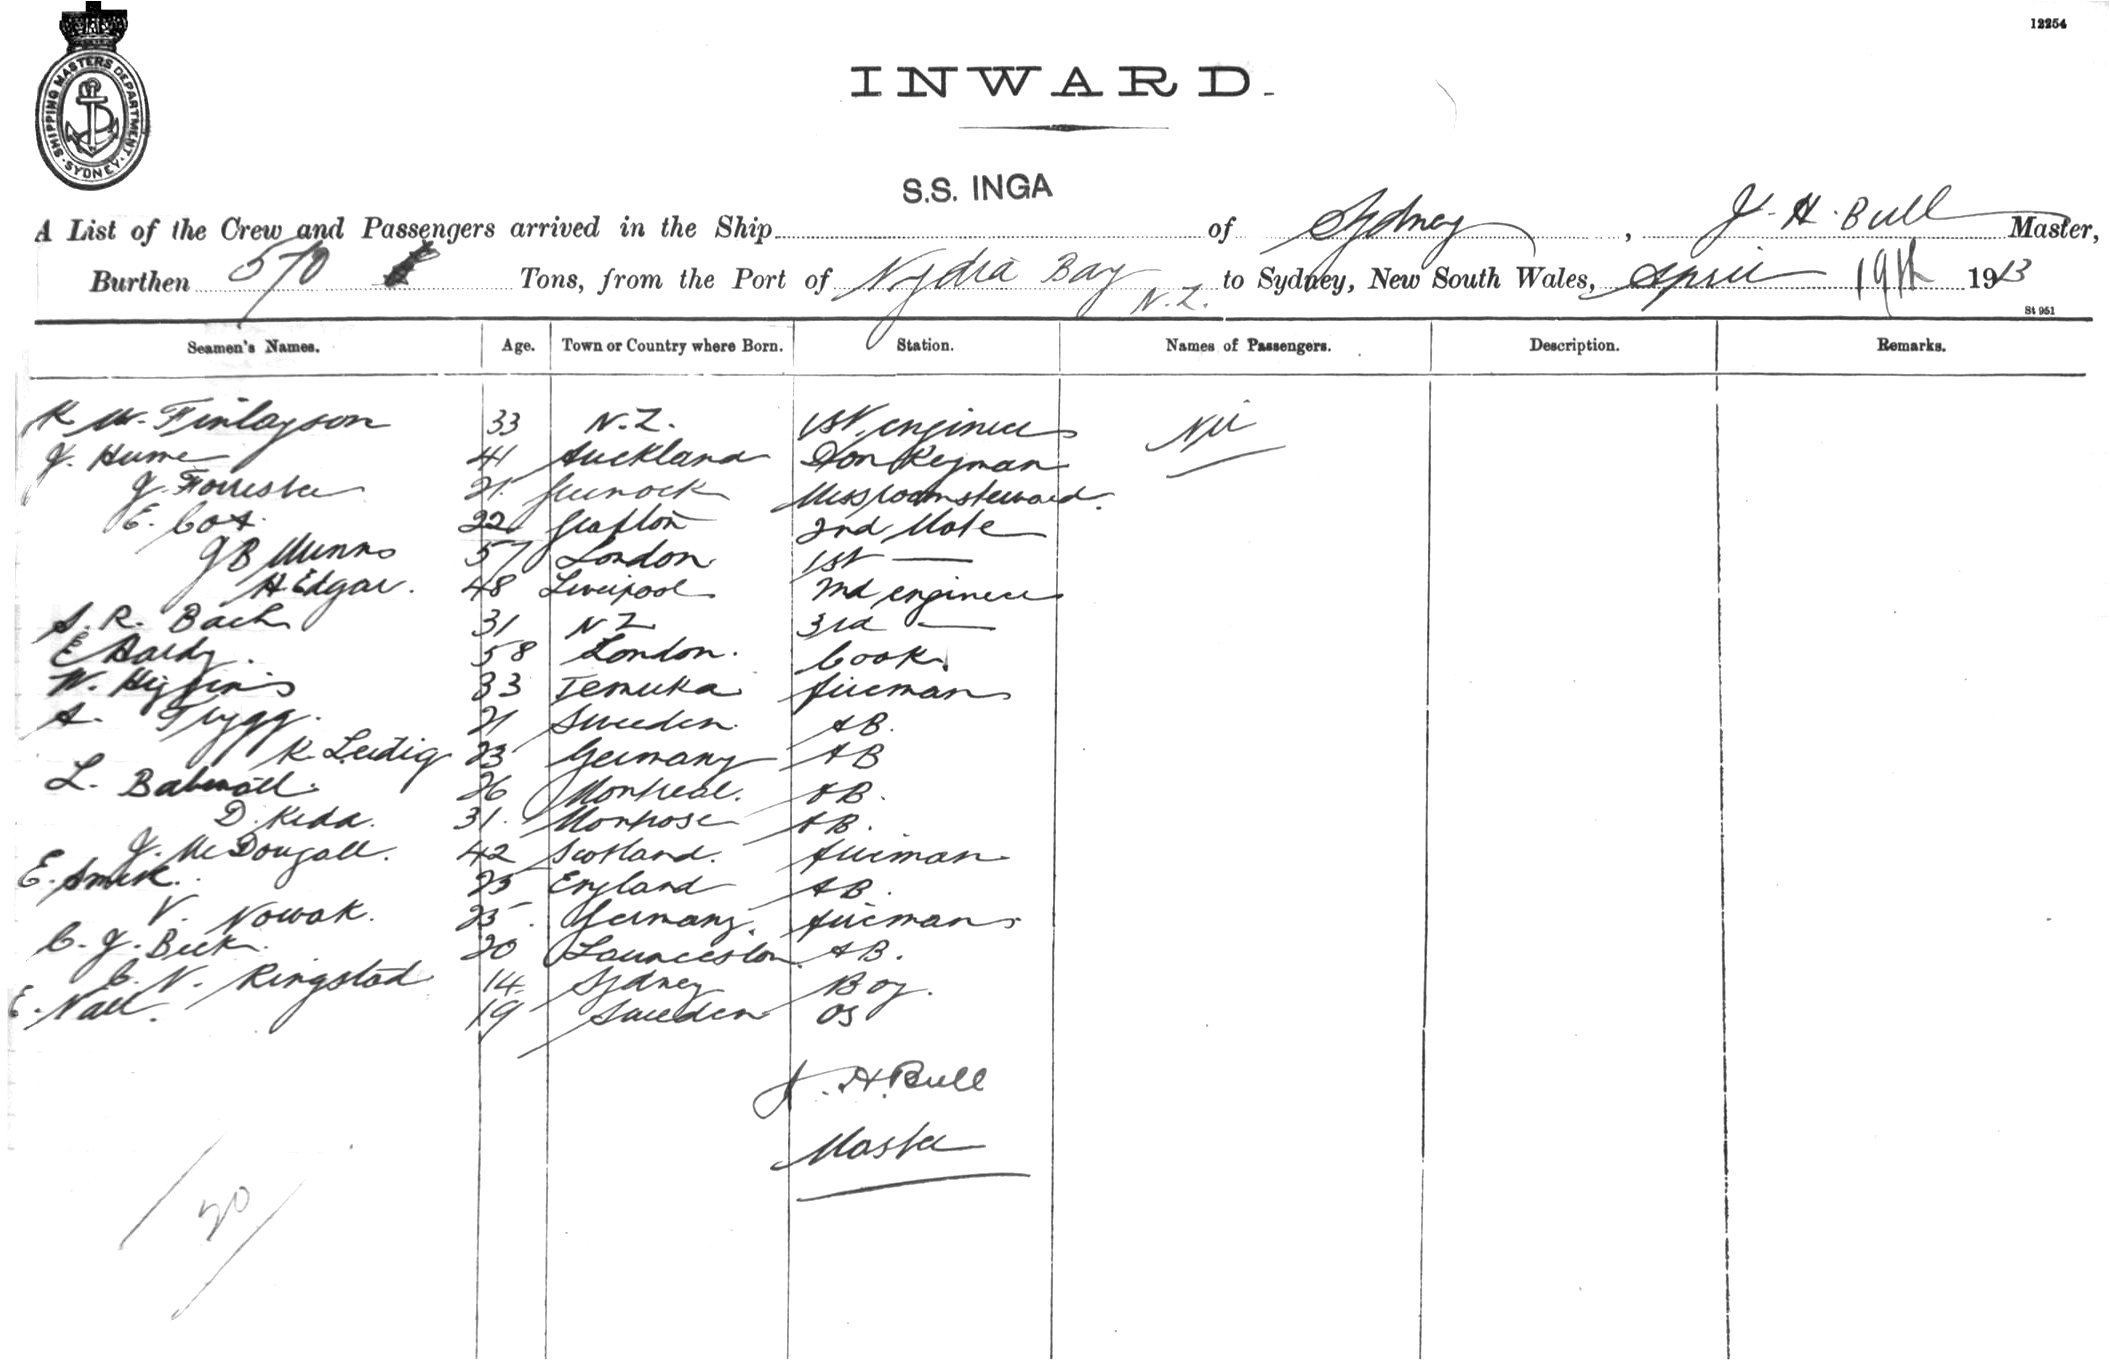 12254
SHIPPING MASTERS DEPARTMENT. SYDNEY.
INWARD.
S.S. INGA
A List of the Crew and Passengers arrived in the Ship of Sydney, J. H. Bull Master,
Burthen 570 Tons, from the Port of Nydia Bay N.Z. to Sydney, New South Wales, April 19th 1913
St 951
Seamen's Names. Age. Town or Country where Born. Station. Names of Passengers. Description. Remarks.
K W. Finlayson 33 N.Z. 1st engineer Nil
J. Hume 41 Auckland Donkeyman
J. Forrester 21 Greenock Messroomsteward.
E. Cox. 22 Grafton 2nd Mate
J B Munns 57 London 1st —
H Edgar. 48 Liverpool 2nd engineer
S. R. Bach 31 N Z 3rd —
E Hardy. 58 London. Cook.
W. Higgins 33 Temuka fireman
A. Trygg. 21 Sweden. AB.
K Leidig 23 Germany AB
L. 26 Montreal. AB.
D. Kidd. 31. Montrose AB.
J. McDougall. 42 Scotland. fireman
E. 23 England AB.
V. Nowak. 25. Germany. fireman
C. J. Beck. 20 Launceston AB.
C. N. Ringstad 14 Sydney Boy.
E. Nall. 19 Sweden OS
J. H. Bull
Master
20